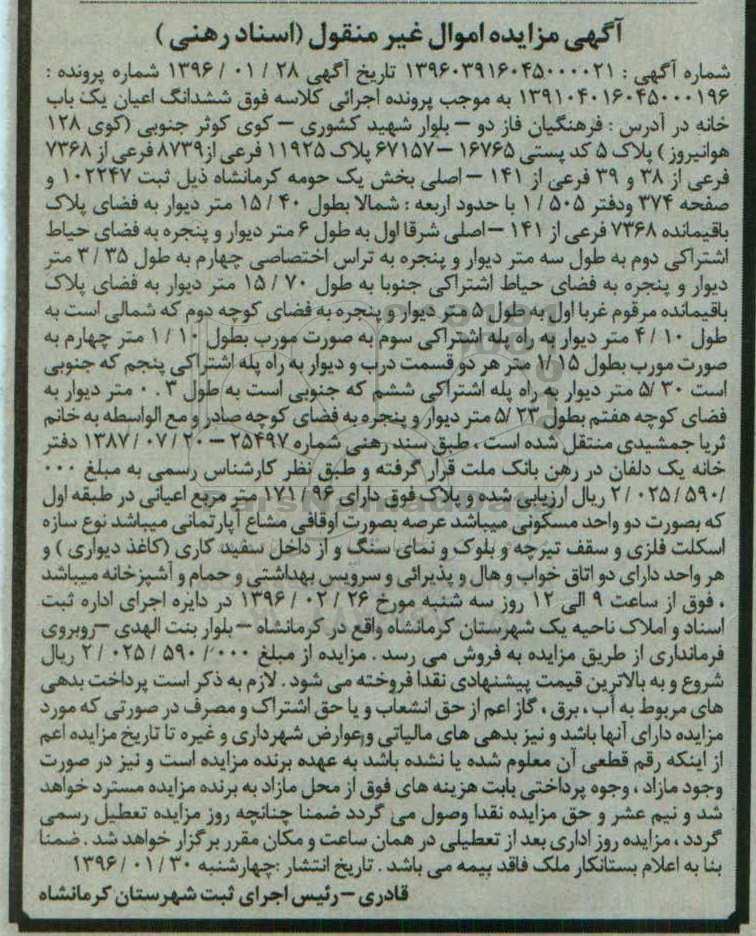 آگهی مزایده اموال غیر منقول (اسناد رهنی)
شماره آگهی : ۱۳۹۶۰۳۹۱۶۰۴۵۰۰۰۰۲۱ تاریخ آگهی ۲۸ / ۰۱ / ۱۳۹۶ شماره پرونده :
۱۳۹۱۰۴۰۱۶۰۴۵۰۰۰۱۹۶ به موجب پرونده اجرائی کلاسه فوق ششدانگ اعیان یک باب
خانه در آدرس : فرهنگیان فاز دو – بلوار شهید کشوری – کوی کوثر جنوبی (کوی ۱۲۸
هوانیروز) پلاک ۵ کد پستی ۱۶۷۶۵ – ۶۷۱۵۷ پلاک ۱۱۹۲۵ فرعی از ۸۷۳۹ فرعی از ۷۳۶۸
فرعی از ۳۸ و ۳۹ فرعی از ۱۴۱ – اصلی بخش یک حومه کرمانشاه ذیل ثبت ۱۰۲۲۴۷ و
صفحه ۳۷۴ ودفتر ۵۰۵ / ۱ با حدود اربعه : شمالا بطول ۴۰ / ۱۵ متر دیوار به فضای پلاک
باقیمانده ۷۳۶۸ فرعی از ۱۴۱ – اصلی شرقا اول به طول ۶ متر دیوار و پنجره به فضای حیاط
اشتراکی دوم به طول سه متر دیوار و پنجره به تراس اختصاصی چهارم به طول ۳۵ / ۳ متر
دیوار و پنجره به فضای حیاط اشتراکی جنوبا به طول ۷۰ / ۱۵ متر دیوار به فضای پلاک
باقیمانده مرقوم غربا اول به طول ۵ متر دیوار و پنجره به فضای کوچه دوم که شمالی است به
طول ۱۰ / ۴ متر دیوار به راه پله اشتراکی سوم به صورت مورب بطول ۱۰ / ۱ متر چهارم به
صورت مورب بطول ۱۵ /۱ متر هر دو قسمت درب و دیوار به راه پله اشتراکی پنجم که جنوبی
است ۳۰ /۵ متر دیوار به راه پله اشتراکی ششم که جنوبی است به طول ۳ . ۰ متر دیوار به
فضای کوچه هفتم بطول ۲۳ /۵ متر دیوار و پنجره به فضای کوچه صادر و مع الواسطه به خانم
ثریا جمشیدی منتقل شده است ، طبق سند رهنی شماره ۲۵۴۹۷ – ۲۰ / ۰۷ / ۱۳۸۷ دفتر
خانه یک دلفان در رهن بانک ملت قرار گرفته و طبق نظر کارشناس رسمی به مبلغ ۰۰۰
/۵۹۰ / ۰۲۵ / ۲ ریال ارزیابی شده و پلاک فوق دارای ۹۶ / ۱۷۱ متر مربع اعیانی در طبقه اول
که بصورت دو واحد مسکونی میباشد عرصه بصورت اوقافی مشاع آپارتمانی میباشد نوع سازه
اسکلت فلزی و سقف تیرچه و بلوک و نمای سنگ و از داخل سفید کاری (کاغذ دیواری ) و
هر واحد دارای دو اتاق خواب و هال و پذیرائی و سرویس بهداشتی و حمام و آشپزخانه میباشد
، فوق از ساعت ۹ الی ۱۲ روز سه شنبه مورخ ۲۶ / ۰۲ / ۱۳۹۶ در دایره اجرای اداره ثبت
اسناد و املاک ناحیه یک شهرستان کرمانشاه واقع در کرمانشاه – بلوار بنت الهدی – روبروی
فرمانداری از طریق مزایده به فروش می رسد . مزایده از مبلغ ۰۰۰/ ۵۹۰ / ۰۲۵ / ۲ ریال
شروع و به بالاترین قیمت پیشنهادی نقدا فروخته می شود . لازم به ذکر است پرداخت بدهی
های مربوط به آب ، برق ، گاز اعم از حق انشعاب و یا حق اشتراک و مصرف در صورتی که مورد
مزایده دارای آنها باشد و نیز بدهی های مالیاتی و عوارض شهرداری و غیره تا تاریخ مزایده اعم
از اینکه رقم قطعی آن معلوم شده یا نشده باشد به عهده برنده مزایده است و نیز در صورت
وجود مازاد ، وجوه پرداختی بابت هزینه های فوق از محل مازاد به برنده مزایده مسترد خواهد
شد و نیم عشر و حق مزایده نقدا وصول می گردد ضمنا چنانچه روز مزایده تعطیل رسمی
گردد ، مزایده روز اداری بعد از تعطیلی در همان ساعت و مکان مقرر برگزار خواهد شد . ضمنا
بنا به اعلام بستانکار ملک فاقد بیمه می باشد . تاریخ انتشار :چهارشنبه ۳۰ / ۰۱ / ۱۳۹۶
قادری – رئیس اجرای ثبت شهرستان کرمانشاه